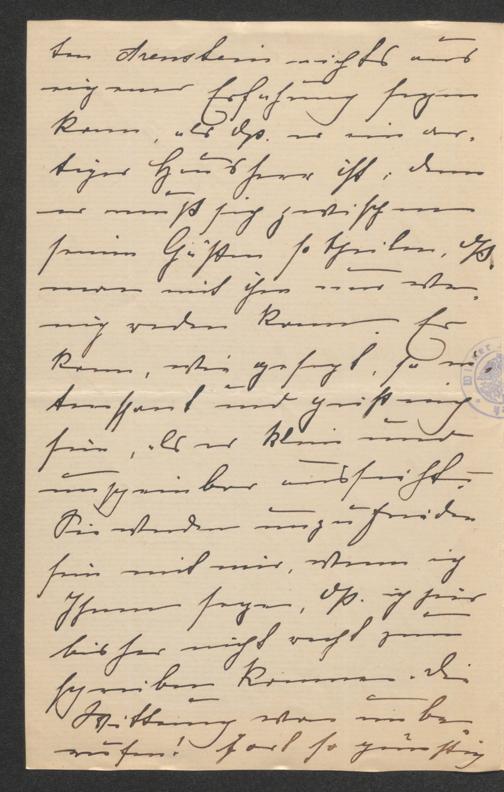 ten Arenstein nichts aus
eigener Erfahrung sagen
kann, als dß. er ein ar-
tiger Hausherr ist; denn
er muß sich zwischen
seinen Gästen so theilen, dß.
man mit ihm nur we-
nig reden kann. Er
kann, wie gesagt, so
amusant und geistreich
sein, als er klein und
unscheinbar aussieht. –
Sie werden unzufrieden
sein mit mir, wenn ich
Ihnen sage, dß. ich hier
bisher nicht recht zum
schreiben kommen. Die
Witterung war unbe-
rufen! fort so günstig